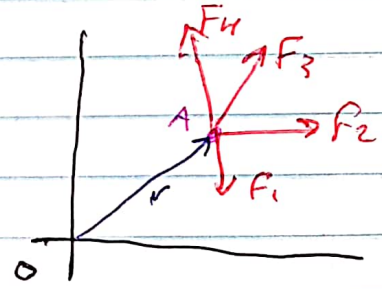 F4
F3
A
F2
r
F1
O